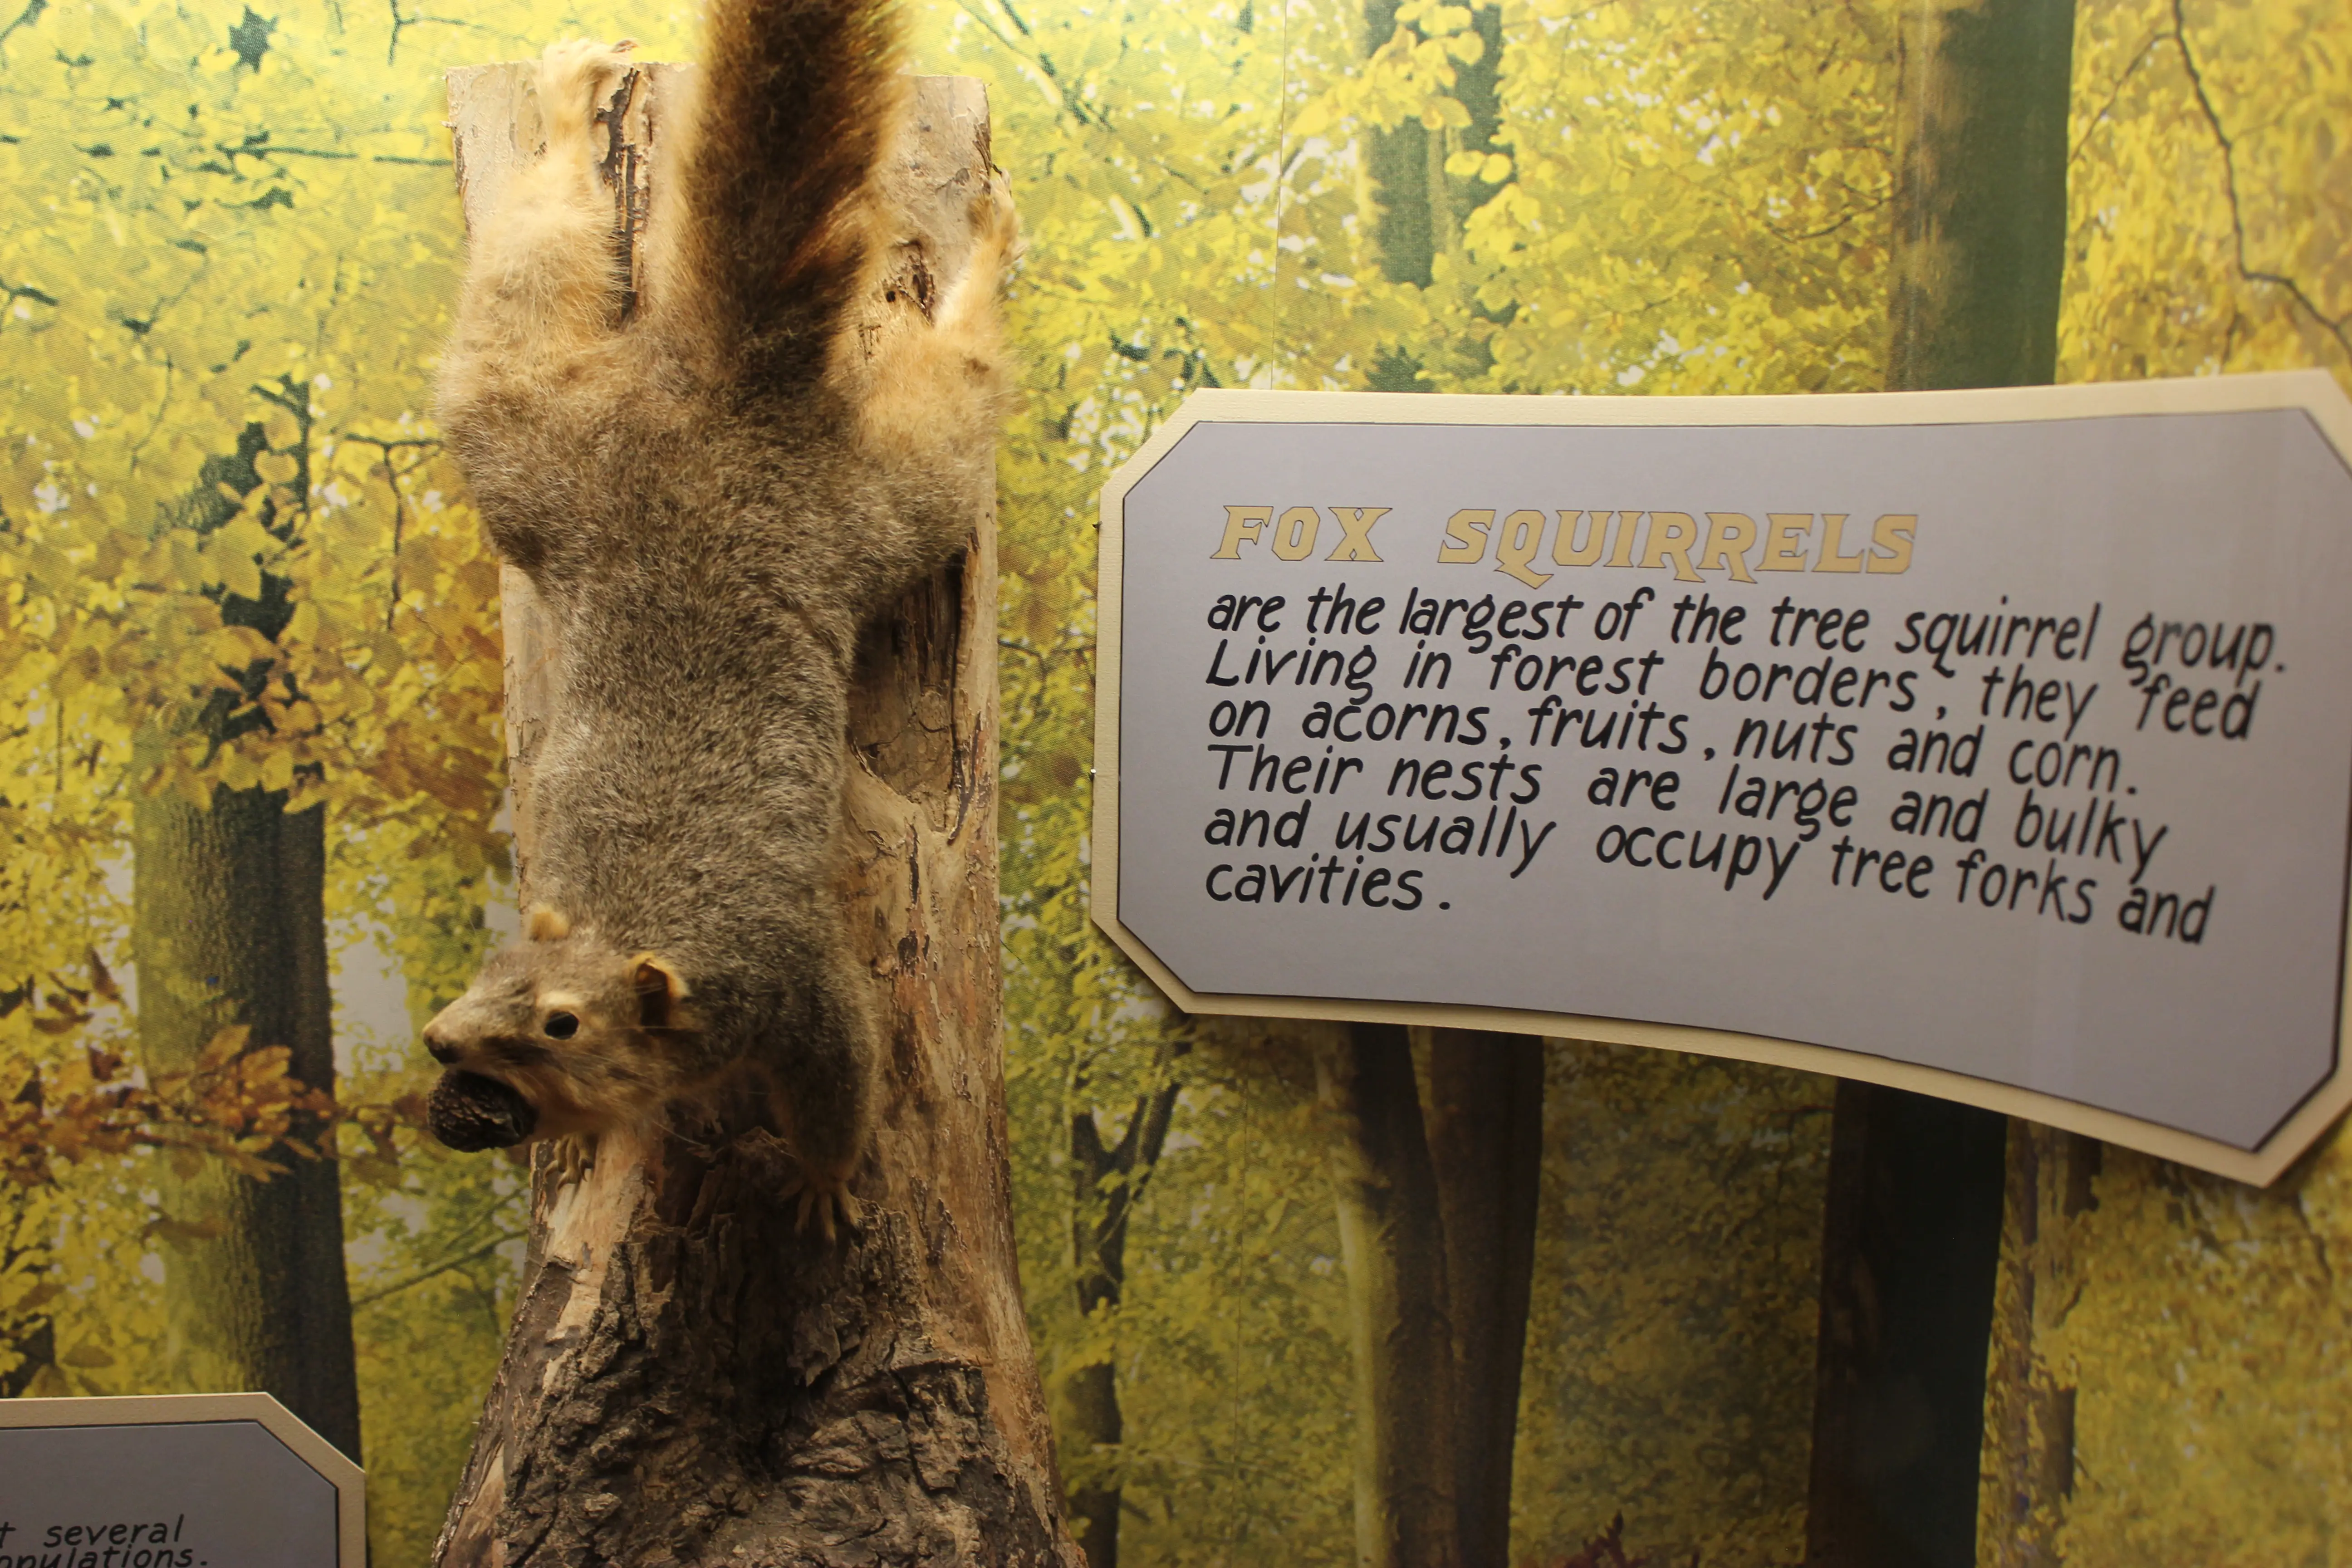 FOX SQUIRRELS
are the largest of the tree squirrel group.
Living in forest borders, they feed
on acorns, fruits, nuts and corn.
Their nests are large and bulky
and usually occupy tree forks and
cavities.
several